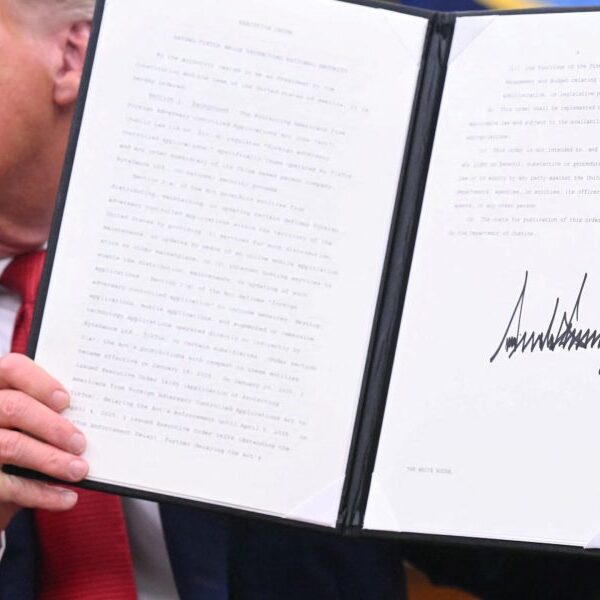 EXECUTIVE ORDER
SAVING TIKTOK WHILE PROTECTING NATIONAL SECURITY
By the authority vested in me as President by the
Constitution and the laws of the United States of America, it is
hereby ordered:
Section 1. Background. The Protecting Americans from
Foreign Adversary Controlled Applications Act
regulates "foreign adversary
controlled applications," specifically those operated by TikTok
and any other subsidiary of its China based parent company
ByteDance Ltd., on national security grounds.
Section 2(a) of the Act prohibits entities from
distributing, maintaining, or updating certain defined foreign
adversary controlled applications within the territory of the
United States by providing (i) services for such distribution,
maintenance, or updating by means of an online mobile application
store or other marketplace, or (ii) internet hosting services to
enable the distribution, maintenance, or updating of such
applications. Section 2(g) of the Act defines "foreign
adversary controlled application" to include websites, desktop
applications, mobile applications, and augmented or immersive
technology applications operated directly or indirectly by
ByteDance Ltd., TikTok, or certain subsidiaries. Under section
2(a), the Act's prohibitions with respect to these entities
became effective on January 19, 2025. On January 20, 2025, I
issued Executive Order 14166 (Application of Protecting
Americans from Foreign Adversary Controlled Applications Act to
TikTok), delaying the Act's enforcement until April 5, 2025. On
April 4, 2025, I issued Executive Order 14258 (Extending the
TikTok Enforcement Delay), further delaying the Act's
(ii) the functions of the Dire
Management and Budget relating
administrative, or legislative p
(b) This order shall be implemented
applicable law and subject to the availabili
appropriations.
(c) This order is not intended to, and
any right or benefit, substantive or procedura
law or in equity by any party against the Unit
departments, agencies, or entities, its officer
agents, or any other person.
(d) The costs for publication of this orde
by the Department of Justice.
THE WHITE HOUSE,